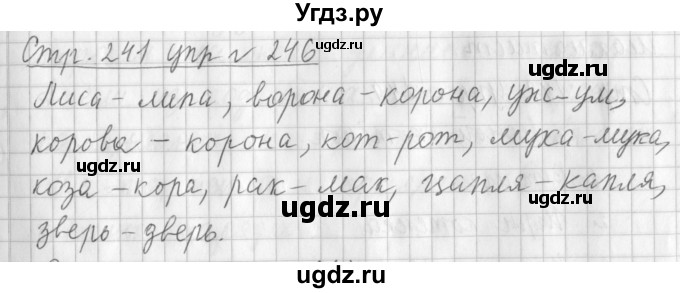 Угдз.ру
Стр. 241 упр № 246
Лиса – липа, ворона – корона, уж – ум,
корова – корона, кот – рот, муха – мука,
коза – кора, рак – мак, цапля – капля,
зверь – дверь.
©ugdz.ru
ugdz.ru
ugdz.ru
ugdz.ru
ugdz.ru
ugdz.ru
ugdz.ru